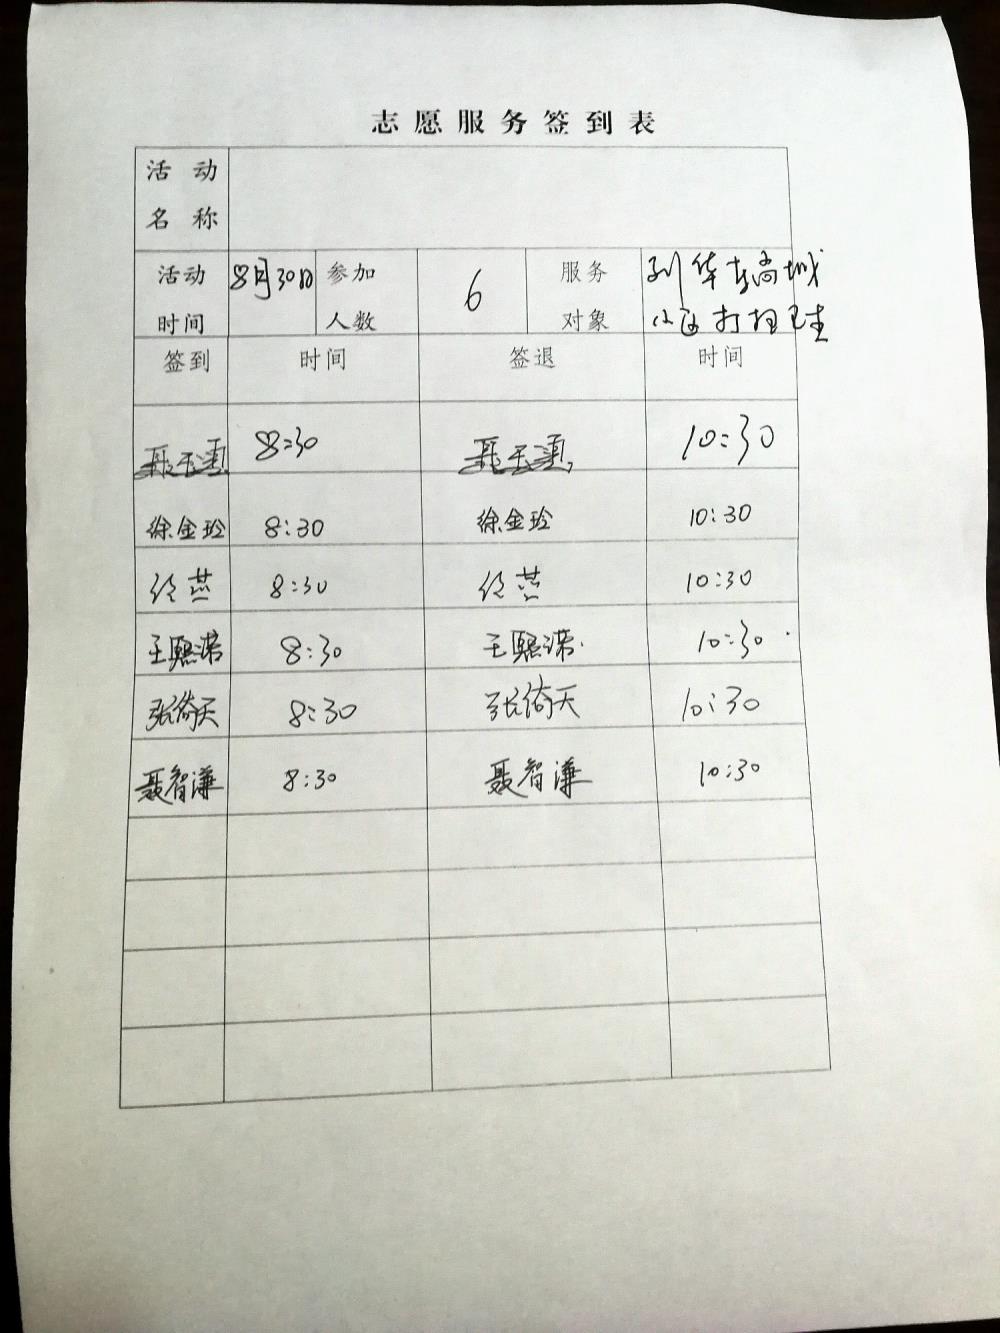 志愿服务签到表
活动
名称
活动
时间
8月30日
参加
人数
6
服务
对象
到华東尚城
小区打扫卫生
签到 时间 签退 时间
8:30 10:30
徐金玲 8:30 徐金玲 10:30
燕 8:30 燕 10:30
王熙 8:30 王熙 10:30
张倚天 8:30 张倚天 10:30
聂智谦 8:30 聂智谦 10:30